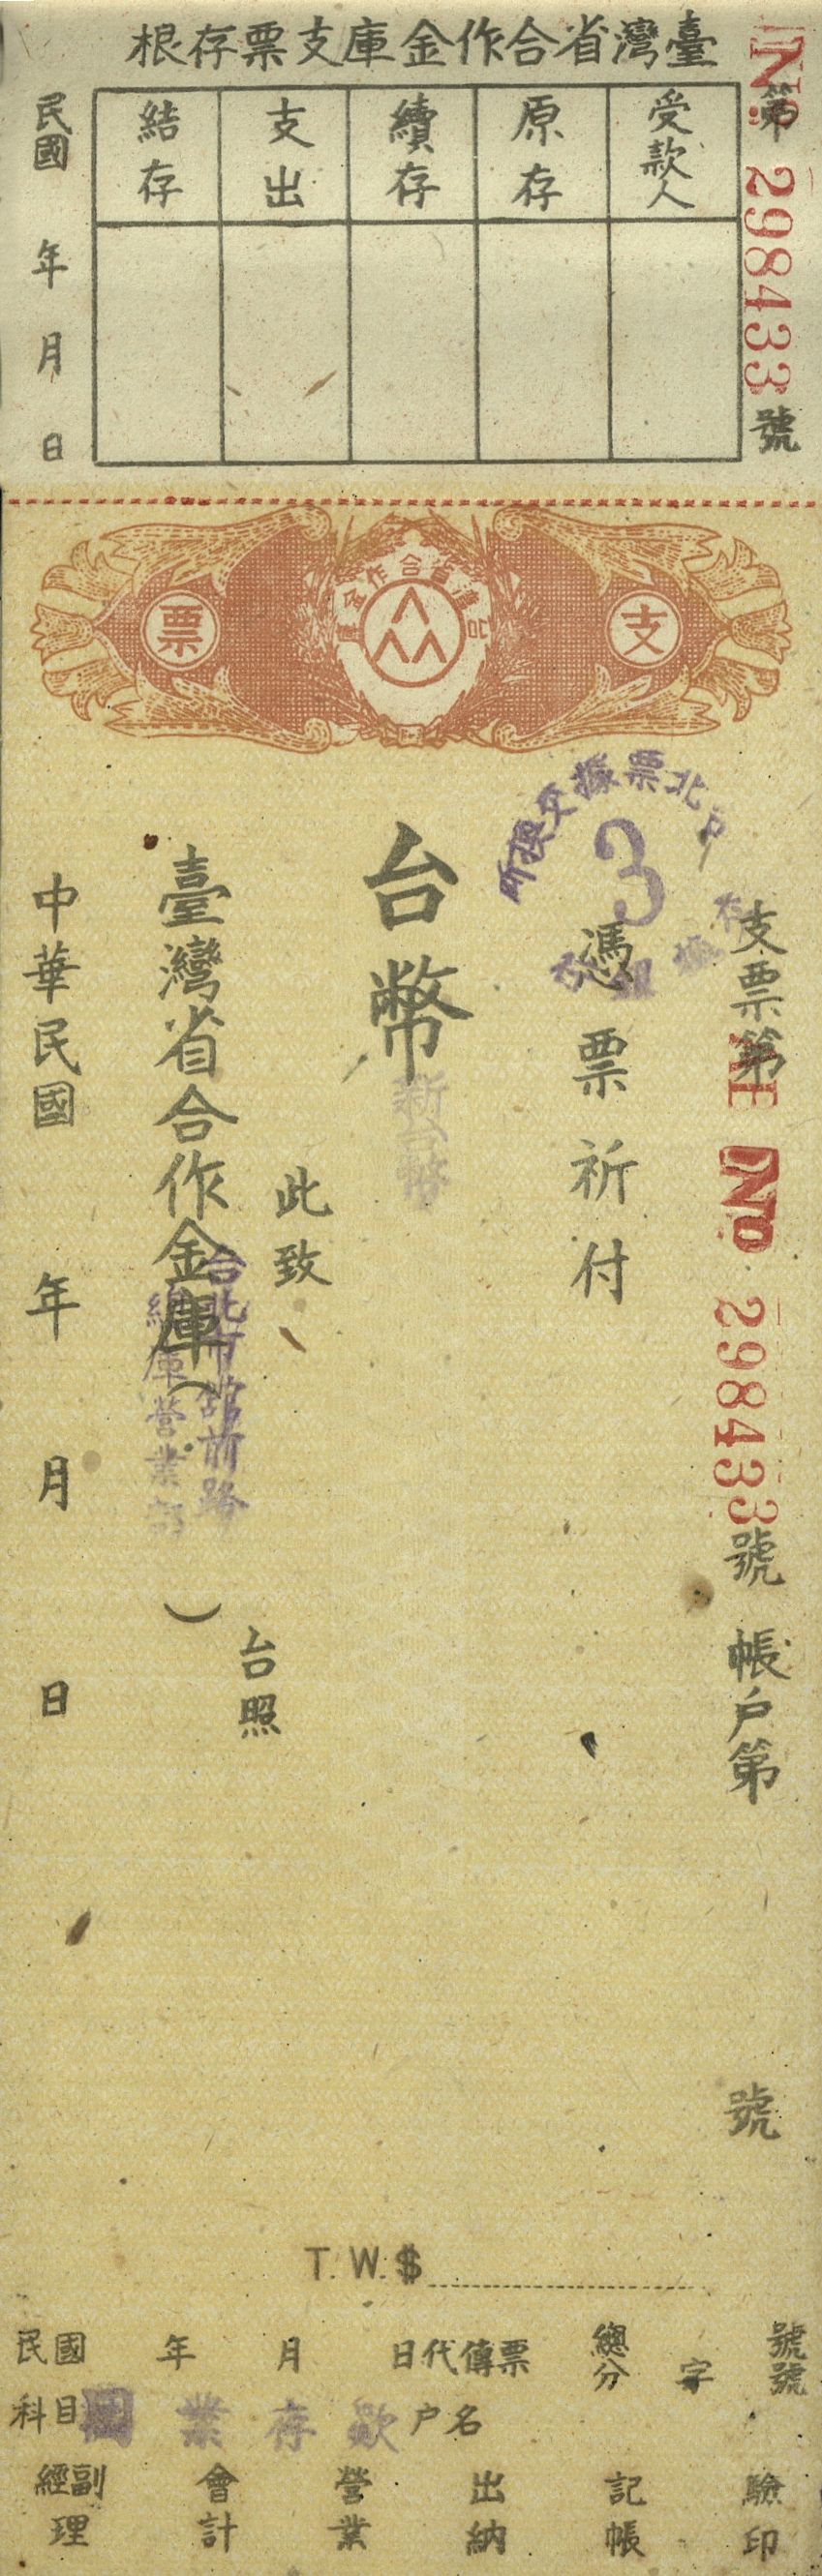 臺灣省合作金庫支票存根
第 No 298433 號
受款人
原存
續存
支出
結存
民國 年 月 日
支
臺灣省合作金庫
票
台北票據交換所
3
支票第 No 298433 號 帳戶第 號
憑票祈付
台幣
新台幣
此致
臺灣省合作金庫( )
台北市館前路
總庫營業部
台照
中華民國 年 月 日
T. W. $
民國 年 月 日代傳票 總分 字 號號
科目 業存款 户名
經副理 會計 營業 出納 記帳 驗印